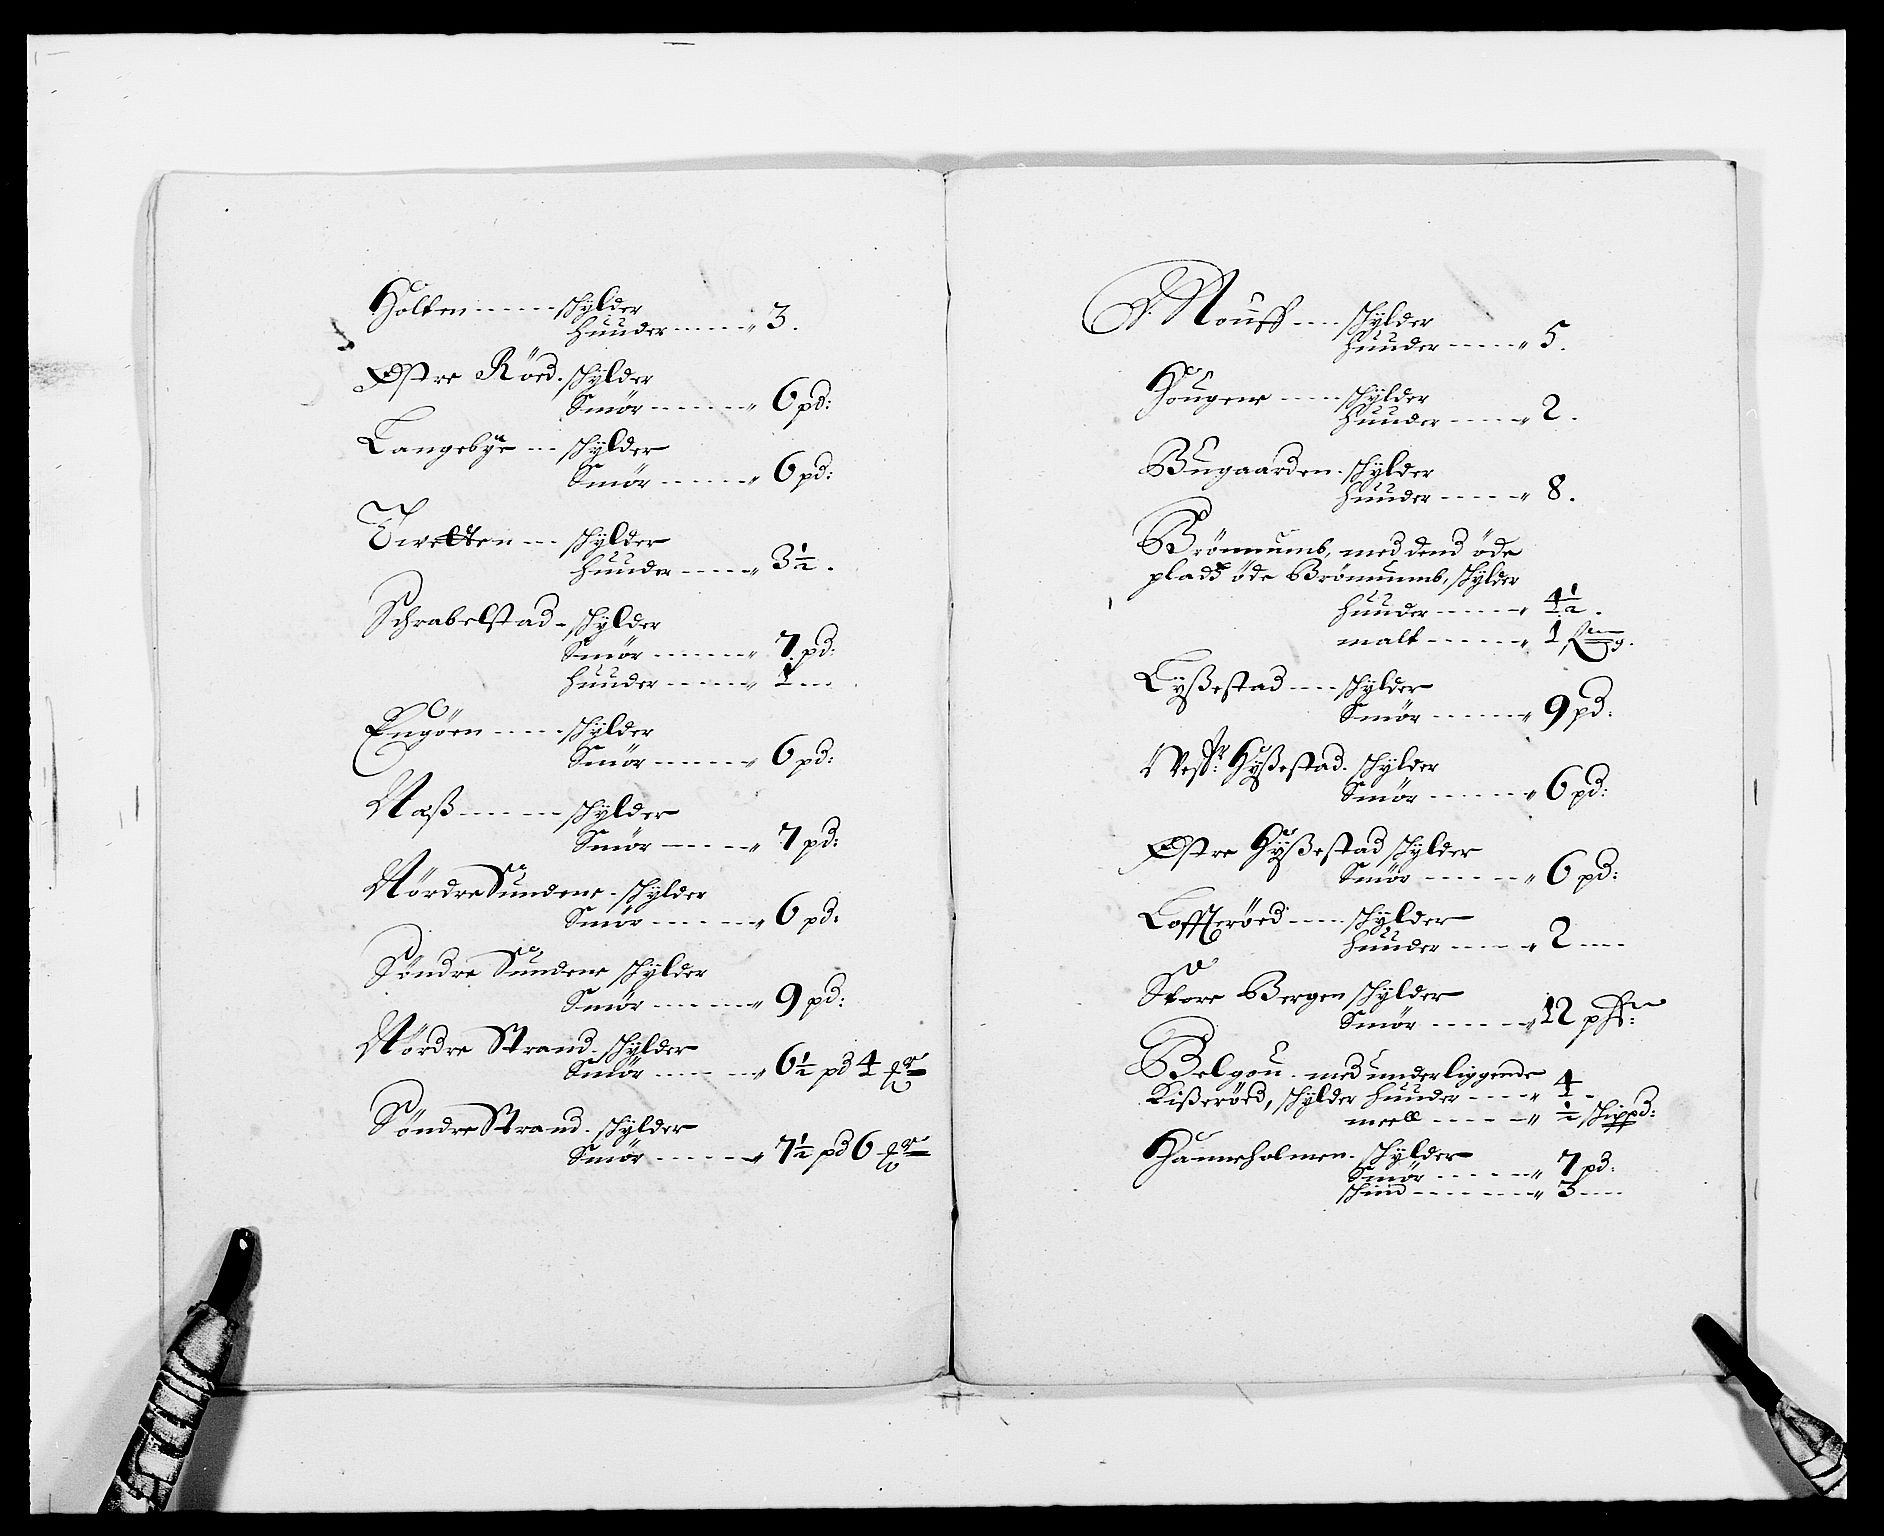 Holten ---- schylder
huuder ----" 3.
Østre Röed. schylder
Smör ----" 6 pd:
Langebÿe --- schylder
Smör ----" 6 pd:
Twetten --- schylder
huuder ----" 3½.
Schrabelstad - schylder
Smör ----" 7 pd:
huuder ----" 1 ---
Engöen ---- schylder
Smör ----" 6 pd:
Næß ---- schylder
Smör ----" 7 pd:
Nördre Sundene - schylder
Smör ----" 6 pd:
Söndre Sundene schylder
Smör ----" 9 pd:
Nördre Strand. schylder
Smör ----" 6½ pd 4
Söndre Strand. schylder
Smör ----" 7½ pd 6
Nouff --- schylder
huuder ----" 5.
Hougene ---- schylder
huuder ----" 2.
Bugaarden. schylder
huuder ----" 8.
Brönnumb, med dend öde
pladtz öde Brönnumb, schylder
huuder ----" 4½.
malt ----" 1
Lyßestad ---- schylder
Smör ----" 9 pd:
Westr: Hyßestad. schylder
Smör ----" 6 pd:
Østre Hyßestad schylder
Smör ----" 6 pd:
Loffteröed ---- schylder
huuder ----" 2 ----
Store Bergen schylder
Smör ----" 12
Belgou. med underliggende
Kißeröed, schylder huuder ----" 4 -
meell ----" ½ schippd:
Hanneholmen. schylder
Smör ----" 7 pd:
schind ----" 3 ----